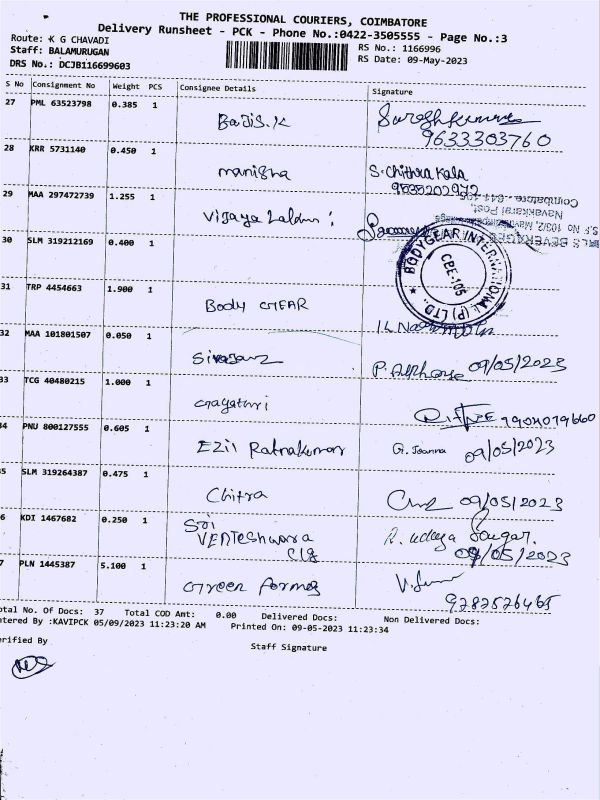 THE PROFESSIONAL COURIERS, COIMBATORE
Delivery Runsheet - PCK - Phone No.:0422-3505555 - Page No.:3
Route: K G CHAVADI
Staff: BALAMURUGAN
DRS No.: DCJB116699603
RS No.: 1166996
RS Date: 09-May-2023
S No Consignment No Weight PCS Consignee Details Signature
27 PML 63523798 0.385 1
Balji.K
9633303760
28 KRR 5731140 0.450 1
manisha S.Chithra Kala
9535202972
29 MAA 297472739 1.255 1
Vijaya
BEVERAGES
S.F No 103/2, Mavuthampathi
Navakkarai Post
Coimbatore - 641 105
30 SLM 319212169 0.400 1
BODYGEAR INTERNATIONAL (P) LTD., ★
CBE-105
31 TRP 4454663 1.900 1
Body GEAR
32 MAA 101801507 0.050 1
P. Alphonse 09/05/2023
33 TCG 40480215 1.000 1
Gayathri
34 PNU 800127555 0.605 1
EZIL Ratnakumar G. Joanna 09/05/2023
35 SLM 319264387 0.475 1
Chitra 09/05/2023
6 KDI 1467682 0.250 1
Sri
R. udaya
09/05/2023
7 PLN 1445387 5.100 1
Green farms
9282526465
otal No. Of Docs: 37 Total COD Amt: 0.00 Delivered Docs: Non Delivered Docs:
ntered By :KAVIPCK 05/09/2023 11:23:20 AM Printed On: 09-05-2023 11:23:34
erified By Staff Signature